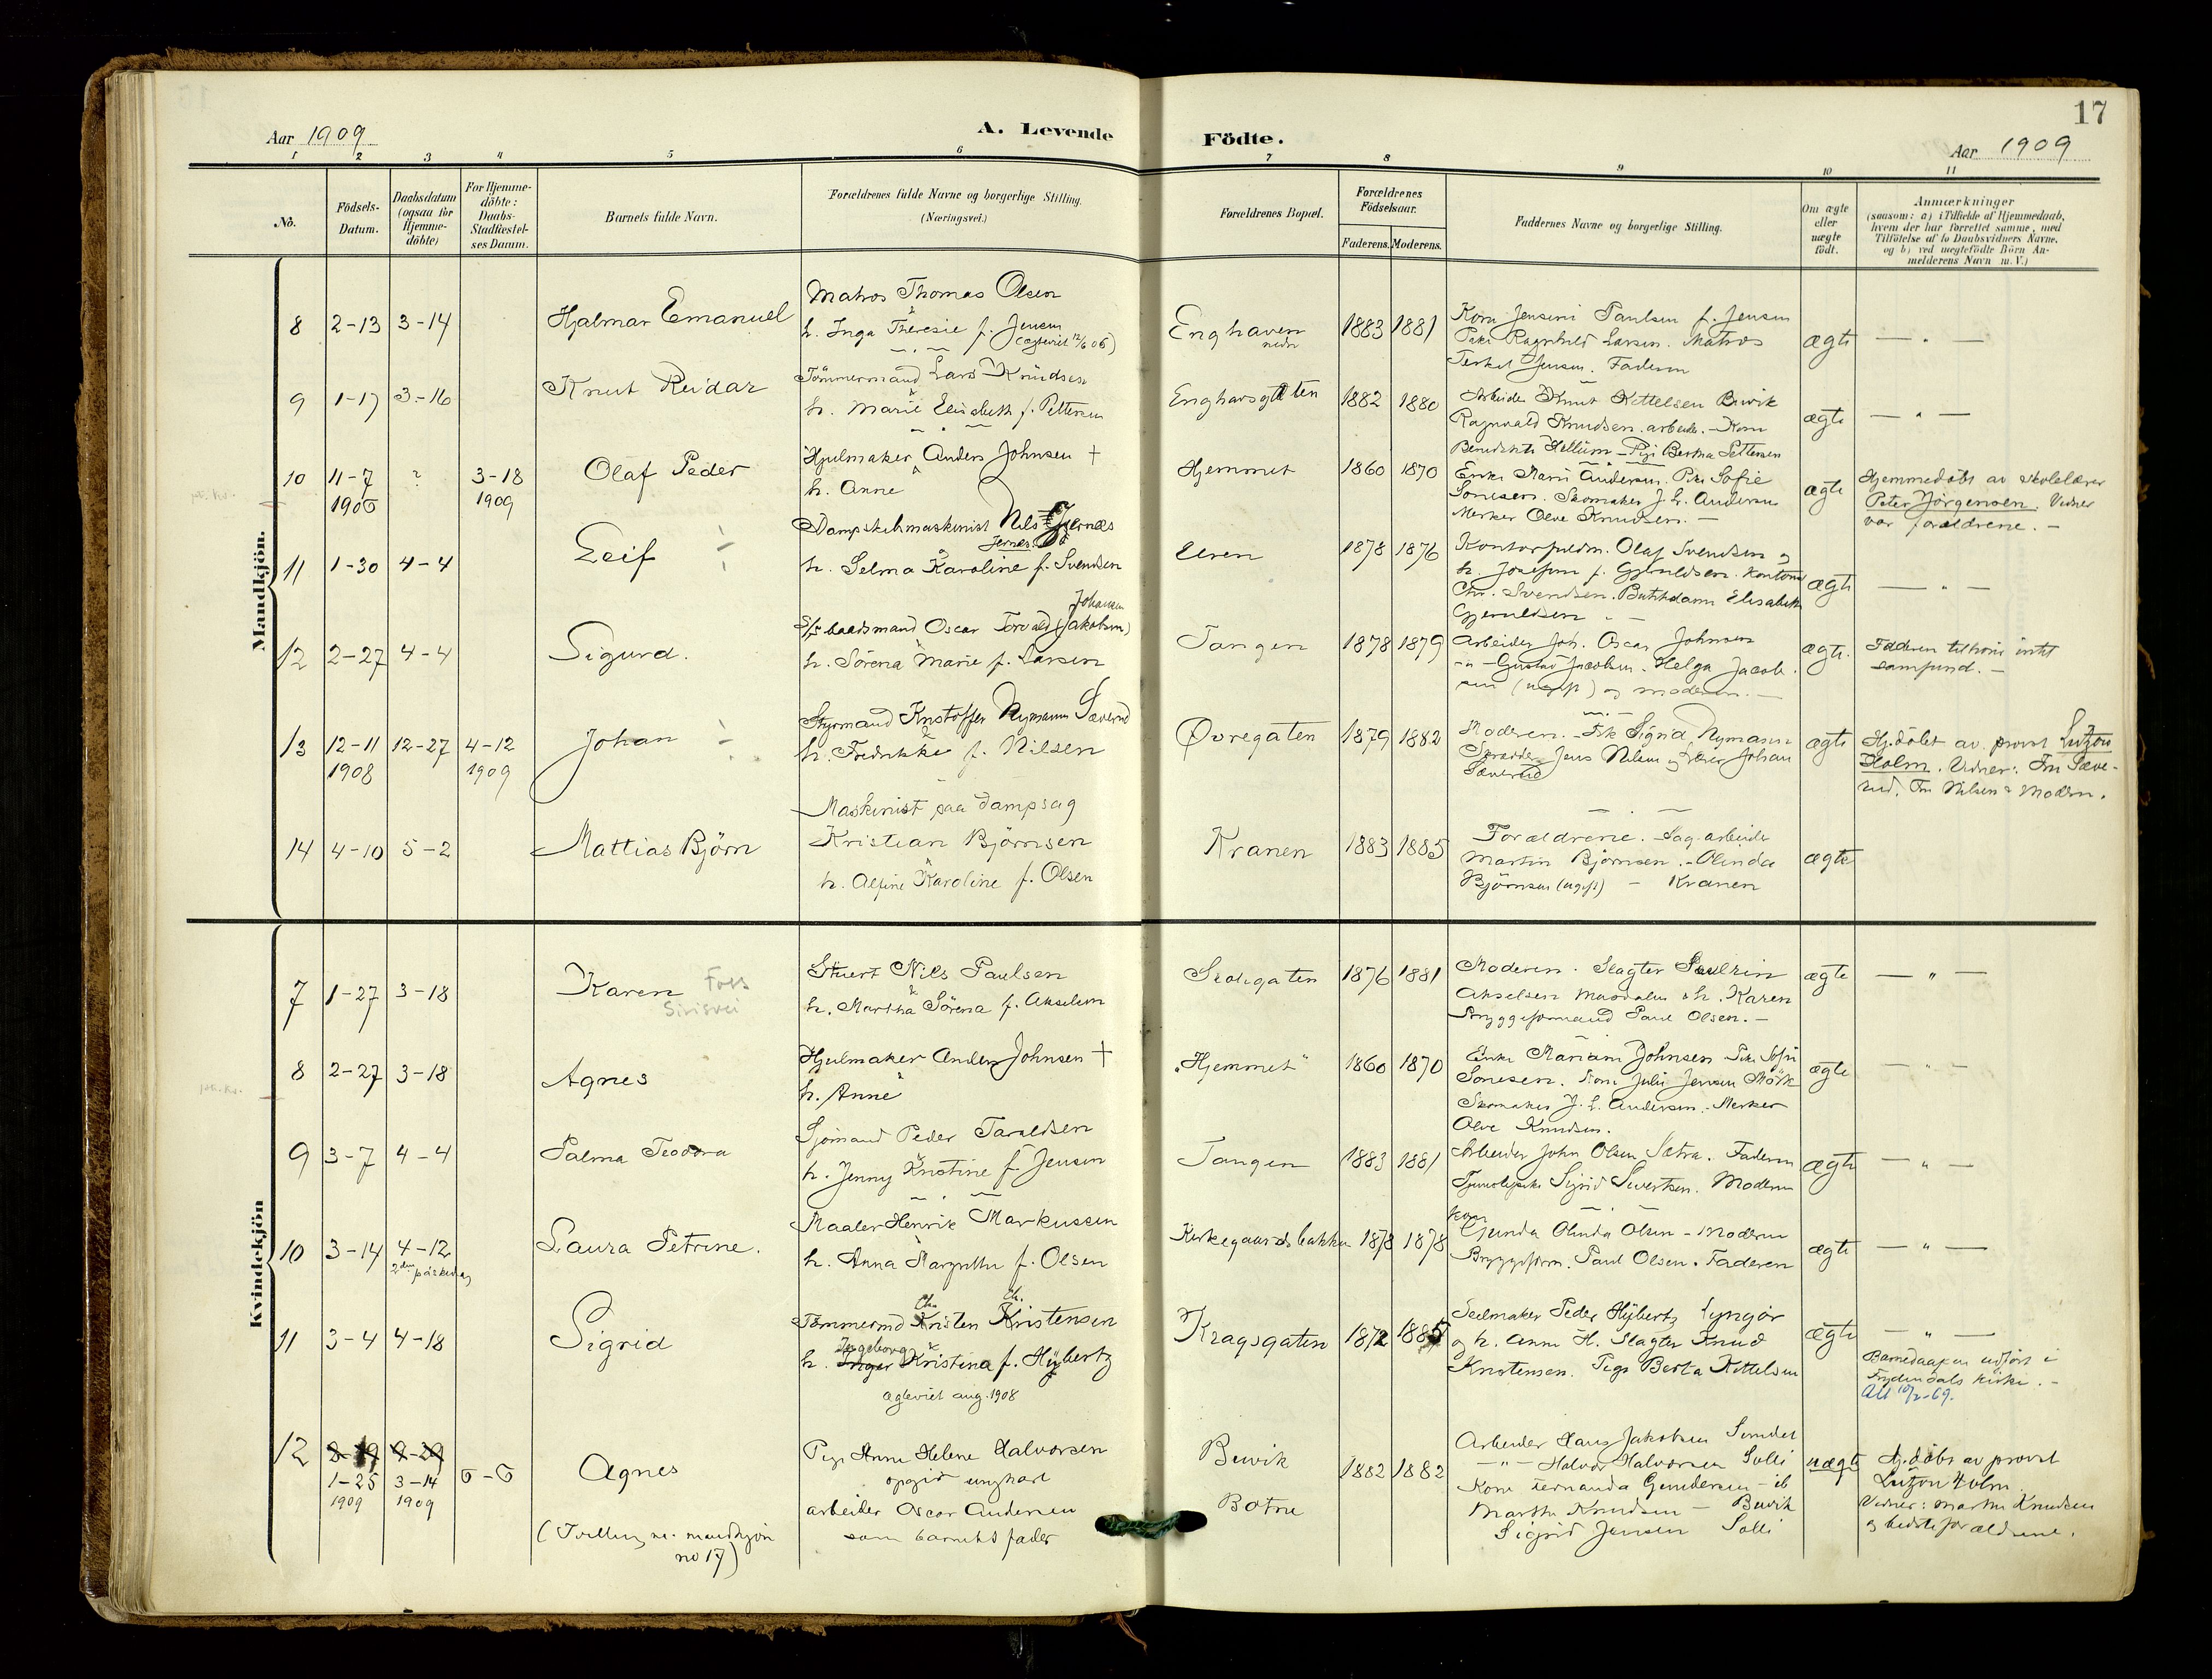 17
Aar 1909
A. Levende Födte.
Aar 1909
1 2 3 4 5 6 7 8 9 10 11
No.
Födsels-Datum.
Daabsdatum (ogsaa for Hjemme-döbte)
For Hjemme-döbte: Daabs-Stadfæstel-ses Datum.
Barnets fulde Navn.
Forældrenes fulde Navne og borgerlige Stilling. (Næringsvei.)
Forældrenes Bopæl.
Forældrenes Födselsaar.
Faderens. Moderens.
Faddernes Navne og borgerlige Stilling.
Om ægte eller uægte födt.
Anmærkninger
(saasom: a) i Tilfælde af Hjemmedaab,
hvem der har forrettet samme, med
Tilföielse af to Daabsvidners Navne.
og b) ved uægtefödte Börn An-
melderens Navn m. V.)
Mandkjön.
8 2-13 3-14 Hjalmar Emanuel
Matros Thomas Olsen
h. Inga Theresie f. Jensen
(ægteviet 12/6 06)
Enghaven
nedre
1883 1881
Kone Jensine Paulsen f. Jensen
Pike Ragnhild Larsen. Matros
Terkel Jensen. Faderen
ægte — " —
9 1-17 3-16 Knut Reidar
Tömmermand Lars Knudsen
h. Marie Elisabeth f. Pettersen
Enghavsgaten
1882 1880
Arbeider Knut Kittelsen Buvik
Ragnvald Knudsen. arbeider. - Kone
Hellum - Pige Bertha Pettersen
ægte — " —
10 11-7 1906 ? 3-18 1909 Olaf Peder
Hjulmaker Anders Johnsen †
h. Anne
Hjemmet
1860 1870
Enke Andersen. Pike Sofie
Sonesen. Skomaker J. L. Andersen
Merker Olve Knudsen. —
ægte
Hjemmedöbt av skolelærer
Peter Jörgensen. Vidner
var forældrene. -
11 1-30 4-4 Leif
Dampskibsmaskinist Nils Jernæs
Jernes.
h. Selma Karoline f. Svendsen
Uren
1878 1876
Kontorfuldm. Olaf Svendsen og
h. Josefine f. Gjeruldsen. Kontorist
Chr. Svendsen. Butikdame Elisabeth
Gjeruldsen
ægte — " —
12 2-27 4-4 Sigurd.
Johansen
S/S baadsmand Oscar Torvald (Jakobsen)
h. Sörena Marie f. Larsen
Tangen
1878 1879
Arbeider Joh. Oscar Johnsen
-"- Gustav Jacobsen. Helga Jacob-
sen (ugift) og moderen. —
ægte.
Faderen tilhörer intet
samfund. -
13 12-11 1908 12-27 4-12 1909 Johan
Styrmand Kristoffer Nymann Sæverud
h. Fredrikke f. Nilsen
Øvregaten
1879 1882
Moderen. - Frk Sigrid Nymann
Skrædder Jens Nilsen og Lærer Johan
Sæverud
ægte
Hj.döbt av provst Lutzow
Holm. Vidner: Fru Sæve-
rud. Fru Nilsen & Modern.
14 4-10 5-2 Mattias Björn
Maskinist paa dampsag
Kristian Björnsen
h. Alfine Karoline f. Olsen
Kranen
1883 1885
Forældrene. - Sag-arbeider
Martin Björnsen. - Olinda
Björnsen (ugift) - Kranen
ægte
Kvindekjön
7 1-27 3-18 Karen
Foss
Sirisvei
Stuert Nils Paulsen
h. Martha Sörena f. Akselsen
Skolegaten
1876 1881
Moderen. Slagter
Akselsen Magdalus & h. Karen
Bryggeformand Paul Olsen. -
ægte — " —
8 2-27 3-18 Agnes
Hjulmaker Anders Johnsen †
h. Anne
"Hjemmet"
1860 1870
Enke Mariane Johnsen Pike Sofie
Sonesen. Kone Julie Jensen Mörk
Skomaker J. L. Andersen. Merker
Olve Knudsen.
ægte — " —
9 3-7 4-4 Palma Teodora
Sjömand Peder Taraldsen
h. Jenny Kristine f. Jensen
Tangen
1883 1881
Arbeider John Olsen Sætra. Faderen
Tjenestepike Sigrid Sivertsen. Modern
ægte — " —
10 3-14 4-12
2den påskedag
Laura Petrine.
Maaler Henrik Markussen
h. Anna Margrethe f. Olsen
Kirkegaardsbakken
1878 1878
Kone
Gunda Olinda Olsen - Modern
Bryggeform. Paul Olsen. Faderen
ægte — " —
11 3-4 4-18 Sigrid
Ch. Ch.
Tömmermd Kristen Kristensen
Ingeborg
h. Inger Kristina f. Hybertz
ægteviet aug. 1908
Kragsgaten
1872 1885
Seilmaker Peder Hybertz Lyngör
og h. Anne H. Slagter Knud
Kristensen. Pige Berta Kittelsen
ægte — " —
Barnedaapen utfört i
Frydendals kirke. -
Att 10/2-69.
12 1-25 1909 3-14 1909 6-6 Agnes
(Tvilling m. mandkjön
no 17)
Pige Anne Helene Halvorsen
opgir ungkarl
arbeider Oscar Andersen
som barnets fader
Buvik
Botne
1882 1882
Arbeider Hans Jakobsen Sundet
-"- Halvor Halvorsen Solli
Kone Fernanda Gundersen - ib
Marthe Knudsen - Buvik
Sigrid Jensen Solli
uægte
Hj.döbt av provst
Lutzow Holm.
Vidner: Marthe Knudsen
og bedsteforældrene.